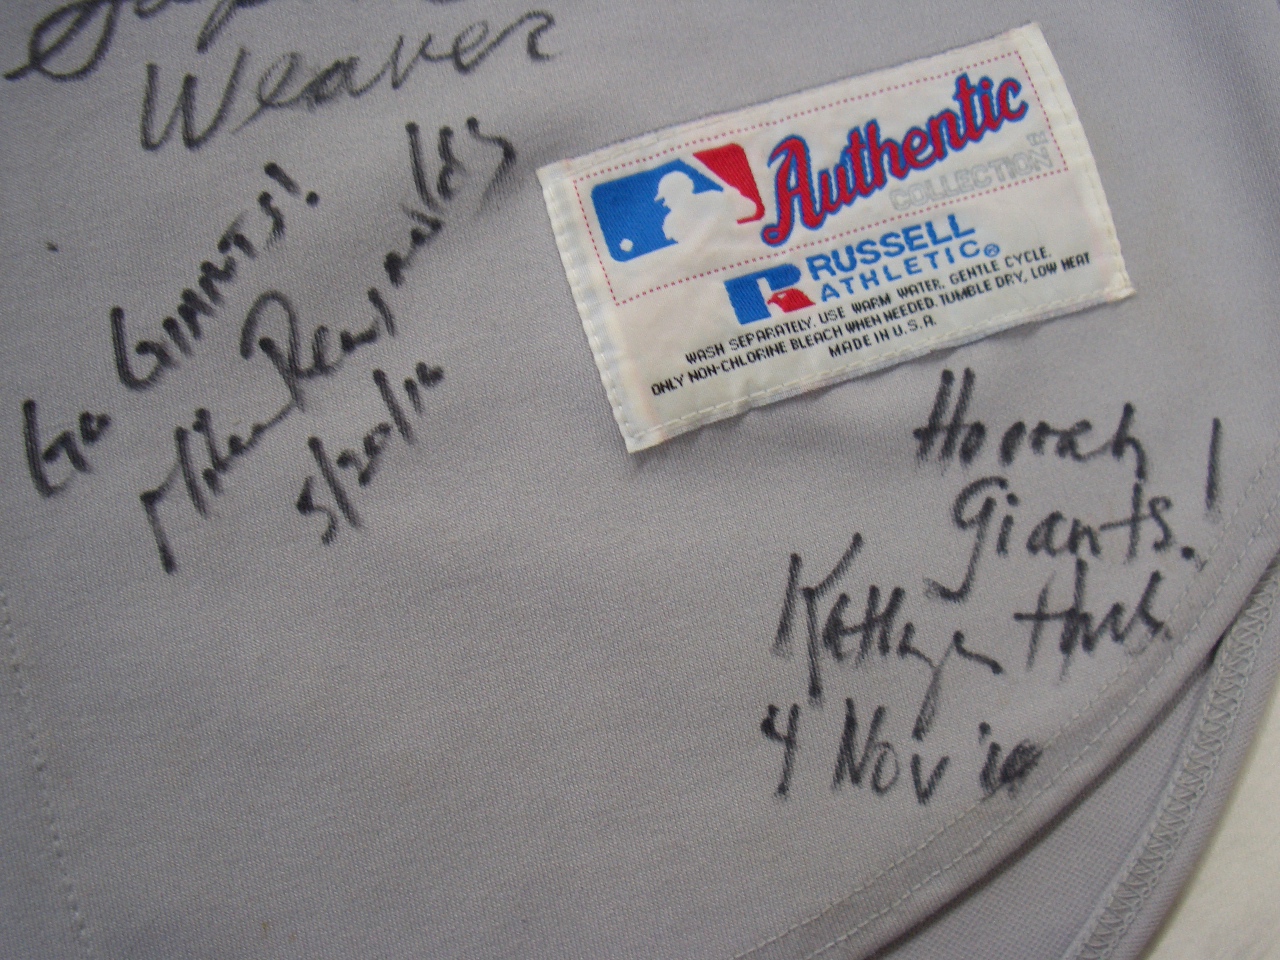 Weaver
Go GIANTS!
5/20/10
Authentic
COLLECTION™
RUSSELL
ATHLETIC®
WASH SEPARATELY. USE WARM WATER, GENTLE CYCLE.
ONLY NON-CHLORINE BLEACH WHEN NEEDED. TUMBLE DRY, LOW HEAT
MADE IN U.S.A.
Hoorah
Giants!
Kathryn
4 Nov '10